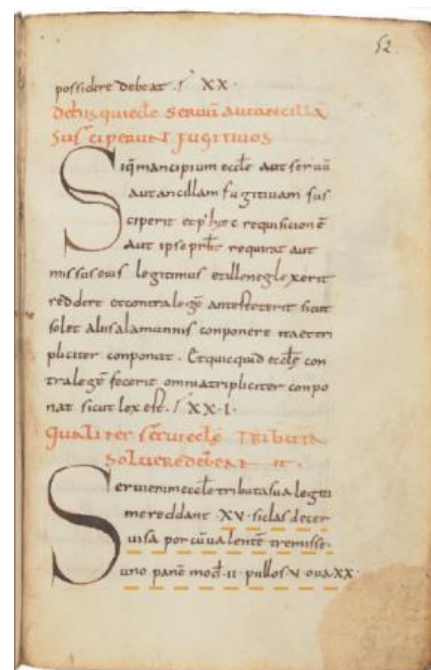 52.
possidere debeat. XX.
De his qui ecclē servū aut ancillā
susceperunt fugitivos
Siq̄ mancipium ecclē aut servū
aut ancillam fugitivam sus
ciperit et p' hęc requisicionē
aut ipse prb̄r requirat aut
missus eius legitimus et ille neglexerit
reddere et contra legē antesteterit sicut
solet aliis alamannis conponere ita et tri
pliciter conponat. Et quicquid ecclē con
tra legē fecerit omnia tripliciter conpo
nat sicut lex est. XX·I·
Qualiter servi ecclē tributa
solvere debeant
Servi enim ecclē tributa sua legiti
me reddant XV siclas de cer
visa porcū valentē tremisse
uno panē mod· II· pullos V· ova XX·